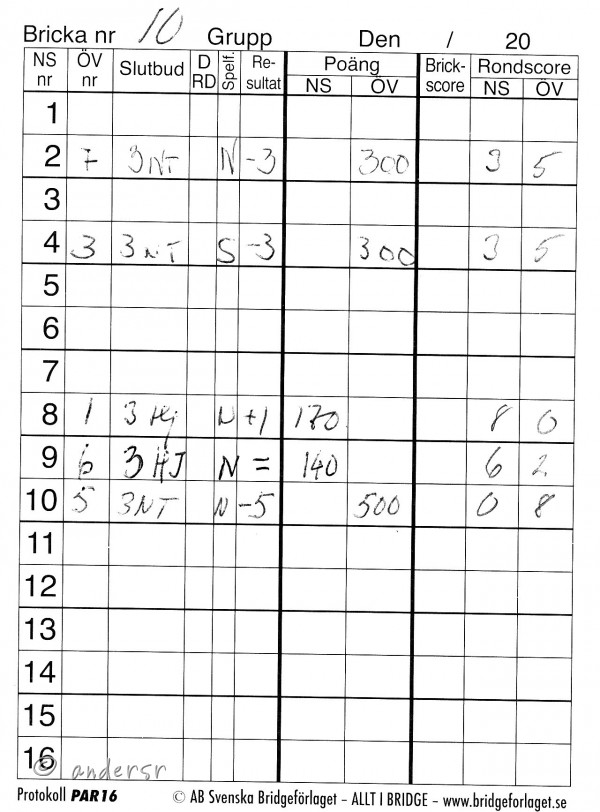 Bricka nr 10 Grupp Den / 20
NS nr ÖV nr Slutbud D RD Spelf. Re-sultat Poäng NS ÖV Brick-score Rondscore NS ÖV
1
2 7 3NT N -3 300 3 5
3
4 3 3NT S -3 300 3 5
5
6
7
8 1 3 Hj N +1 170 8 0
9 6 3 HJ N = 140 6 2
10 5 3NT N -5 500 0 8
11
12
13
14
15
16
© andersr
Protokoll PAR16 © AB Svenska Bridgeförlaget – ALLT I BRIDGE – www.bridgeforlaget.se